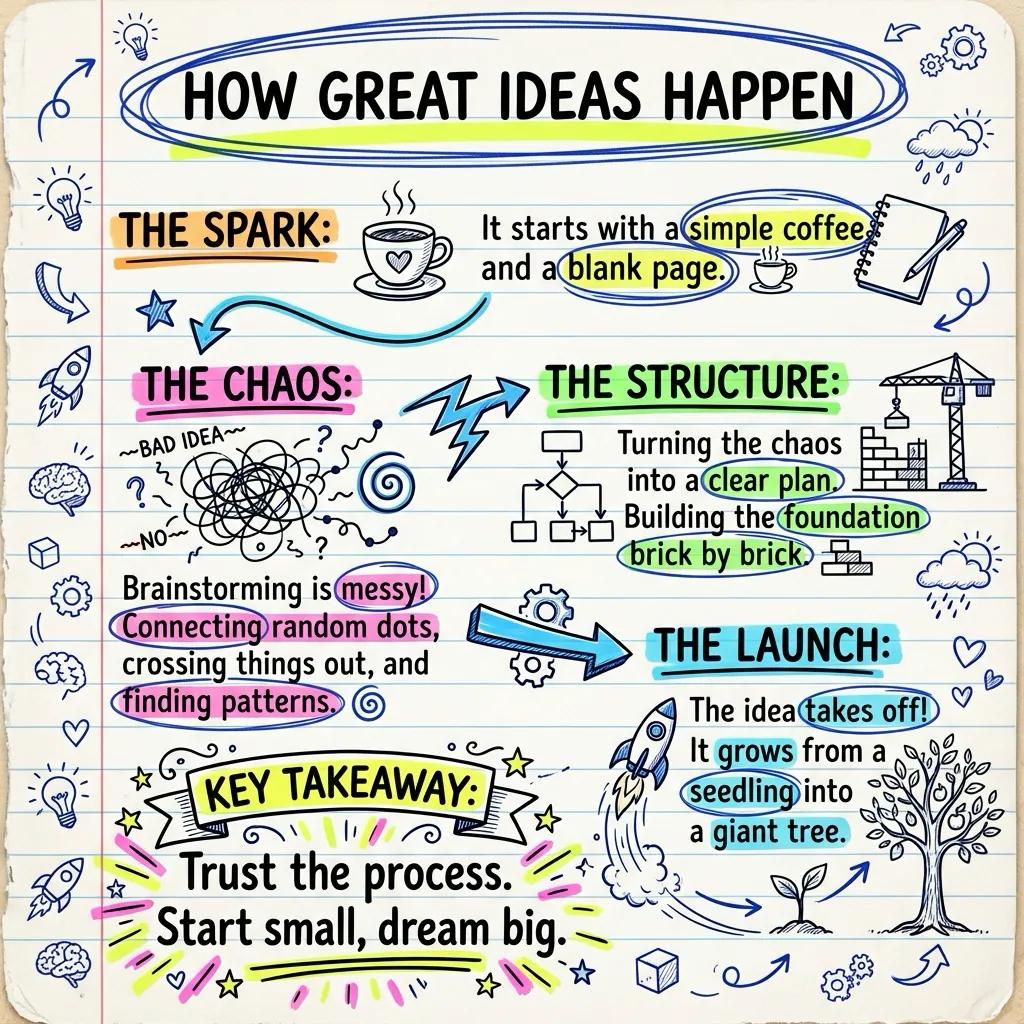 HOW GREAT IDEAS HAPPEN
THE SPARK:
It starts with a simple coffee
and a blank page.
THE CHAOS:
~~BAD IDEA~~
?
?
~~NO~~
?
Brainstorming is messy!
Connecting random dots,
crossing things out, and
finding patterns.
THE STRUCTURE:
Turning the chaos
into a clear plan.
Building the foundation
brick by brick.
THE LAUNCH:
The idea takes off!
It grows from a
seedling into
a giant tree.
KEY TAKEAWAY:
Trust the process.
Start small, dream big.